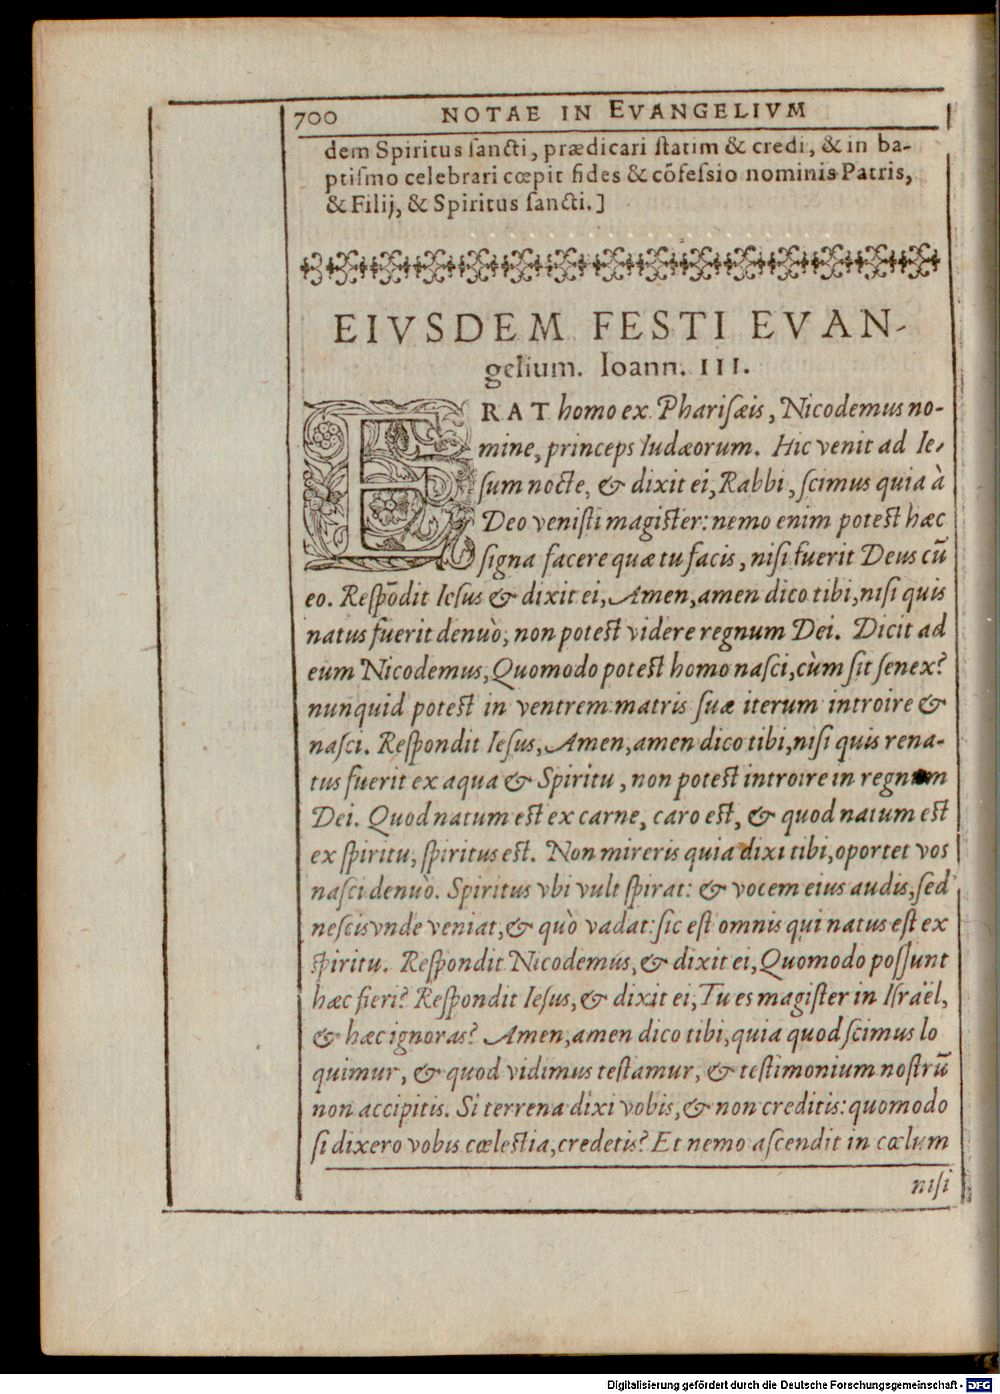 700 NOTAE IN EVANGELIVM
dem Spiritus ſancti, prædicari ſtatim & credi, & in ba-
ptiſmo celebrari cœpit fides & cõfeſsio nominis Patris,
& Filij, & Spiritus ſancti.]
EIVSDEM FESTI EVAN-
gelium. Ioann. III.
ERAT homo ex Phariſæis, Nicodemus no-
mine, princeps Iudæorum. Hic venit ad Ie-
ſum nocte, & dixit ei, Rabbi, ſcimus quia à
Deo veniſti magiſter: nemo enim poteſt hæc
ſigna facere quæ tu facis, niſi fuerit Deus cū
eo. Reſpõdit Ieſus & dixit ei, Amen, amen dico tibi, niſi quis
natus fuerit denuò, non poteſt videre regnum Dei. Dicit ad
eum Nicodemus, Quomodo poteſt homo naſci, cùm ſit ſenex?
nunquid poteſt in ventrem matris ſuæ iterum introire &
naſci. Reſpondit Ieſus, Amen, amen dico tibi, niſi quis rena-
tus fuerit ex aqua & Spiritu, non poteſt introire in regnum
Dei. Quod natum eſt ex carne, caro eſt, & quod natum eſt
ex ſpiritu, ſpiritus eſt. Non mireris quia dixi tibi, oportet vos
naſci denuò. Spiritus vbi vult ſpirat: & vocem eius audis, ſed
neſcis vnde veniat, & quò vadat: ſic eſt omnis qui natus eſt ex
ſpiritu. Reſpondit Nicodemus, & dixit ei, Quomodo poſſunt
hæc fieri? Reſpondit Ieſus, & dixit ei, Tu es magiſter in Iſraël,
& hæc ignoras? Amen, amen dico tibi, quia quod ſcimus lo
quimur, & quod vidimus teſtamur, & teſtimonium noſtrū
non accipitis. Si terrena dixi vobis, & non creditis: quomodo
ſi dixero vobis cœleſtia, credetis? Et nemo aſcendit in cœlum
niſi
Digitalisierung gefördert durch die Deutsche Forschungsgemeinschaft - DFG